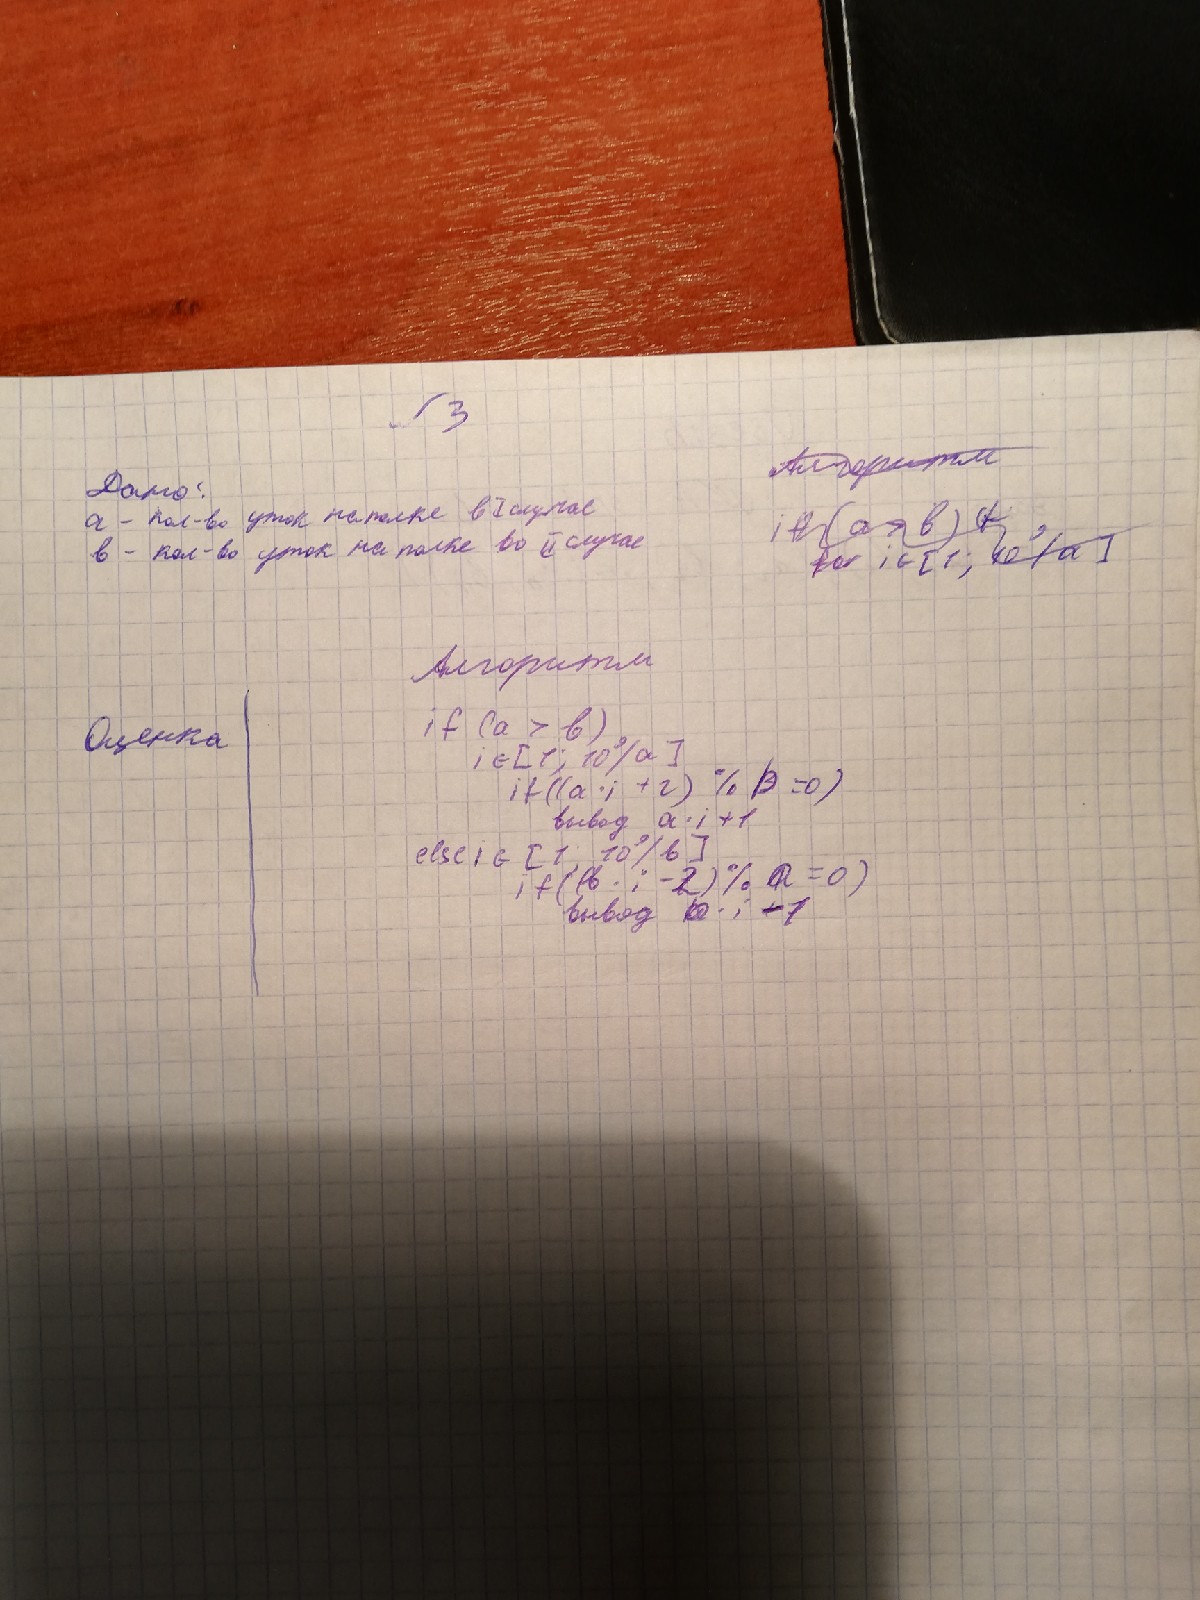 √3
Дано:
a - кол-во уток на полке в I случае
в - кол-во уток на полке во II случае
Алгоритм
if (a > в)
for i ∈ [1; 10⁹/a]
Алгоритм
Оценка
if (a > в)
i ∈ [1; 10⁹/a]
if ((a·i + 2) % в = 0)
вывод a·i + 1
else i ∈ [1; 10⁹/в]
if ((в·i - 2) % a = 0)
вывод в·i - 1